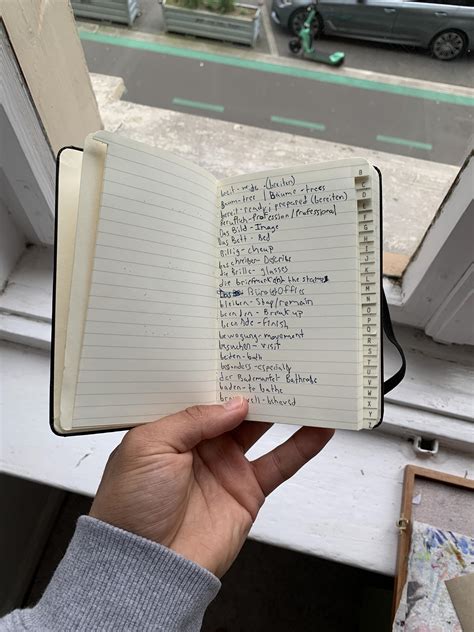 breit - wide (breiten)
Baum - tree / Bäume - trees
bereit - ready + prepared (bereiten)
Beruflich - Profession / Professional
Das Bild - Image
Das Bett - Bed
Billig - cheap
beschreiben - Describe
die Brille - glasses
die briefmarke the stamp
Büro Office
bleiben - Stay/remain
beenden - Break up
beende - finish
bewegung - movement
besuchen - visit
baden - bath
besonders - especially
der Bademantel Bathrobe
baden - to bathe
B
C
D
E
F
G
H
I
J
K
L
M
N
O
P
Q
R
S
T
U
V
W
X
Y
Z